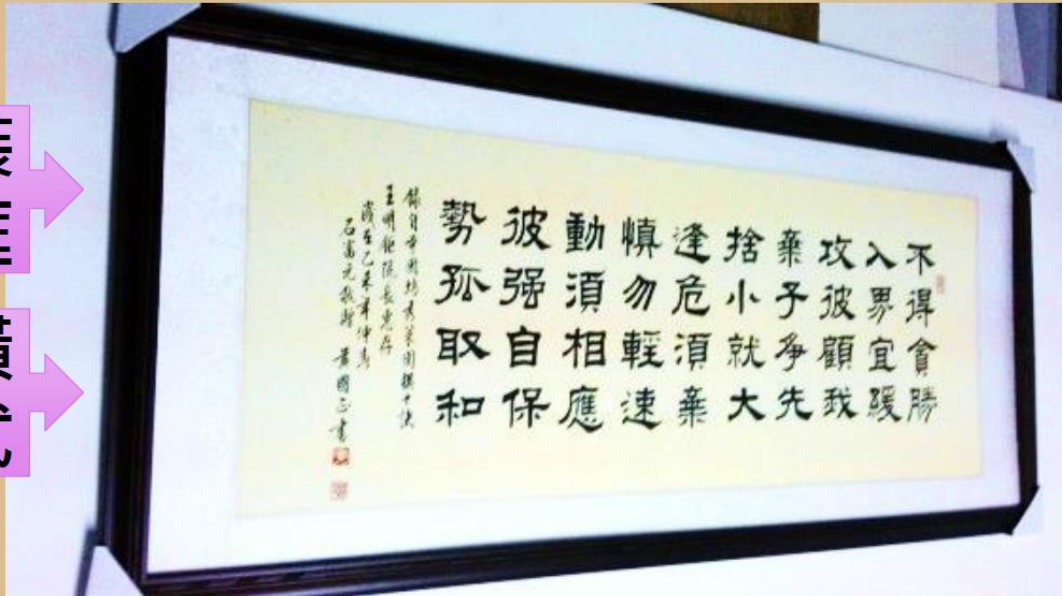 不得貪勝
入界宜緩
攻彼顧我
棄子爭先
捨小就大
逢危須棄
慎勿輕速
動須相應
彼强自保
勢孤取和
錄自中國
王明鉅院長惠存
歲在乙未年仲
石富元敬贈 國正書